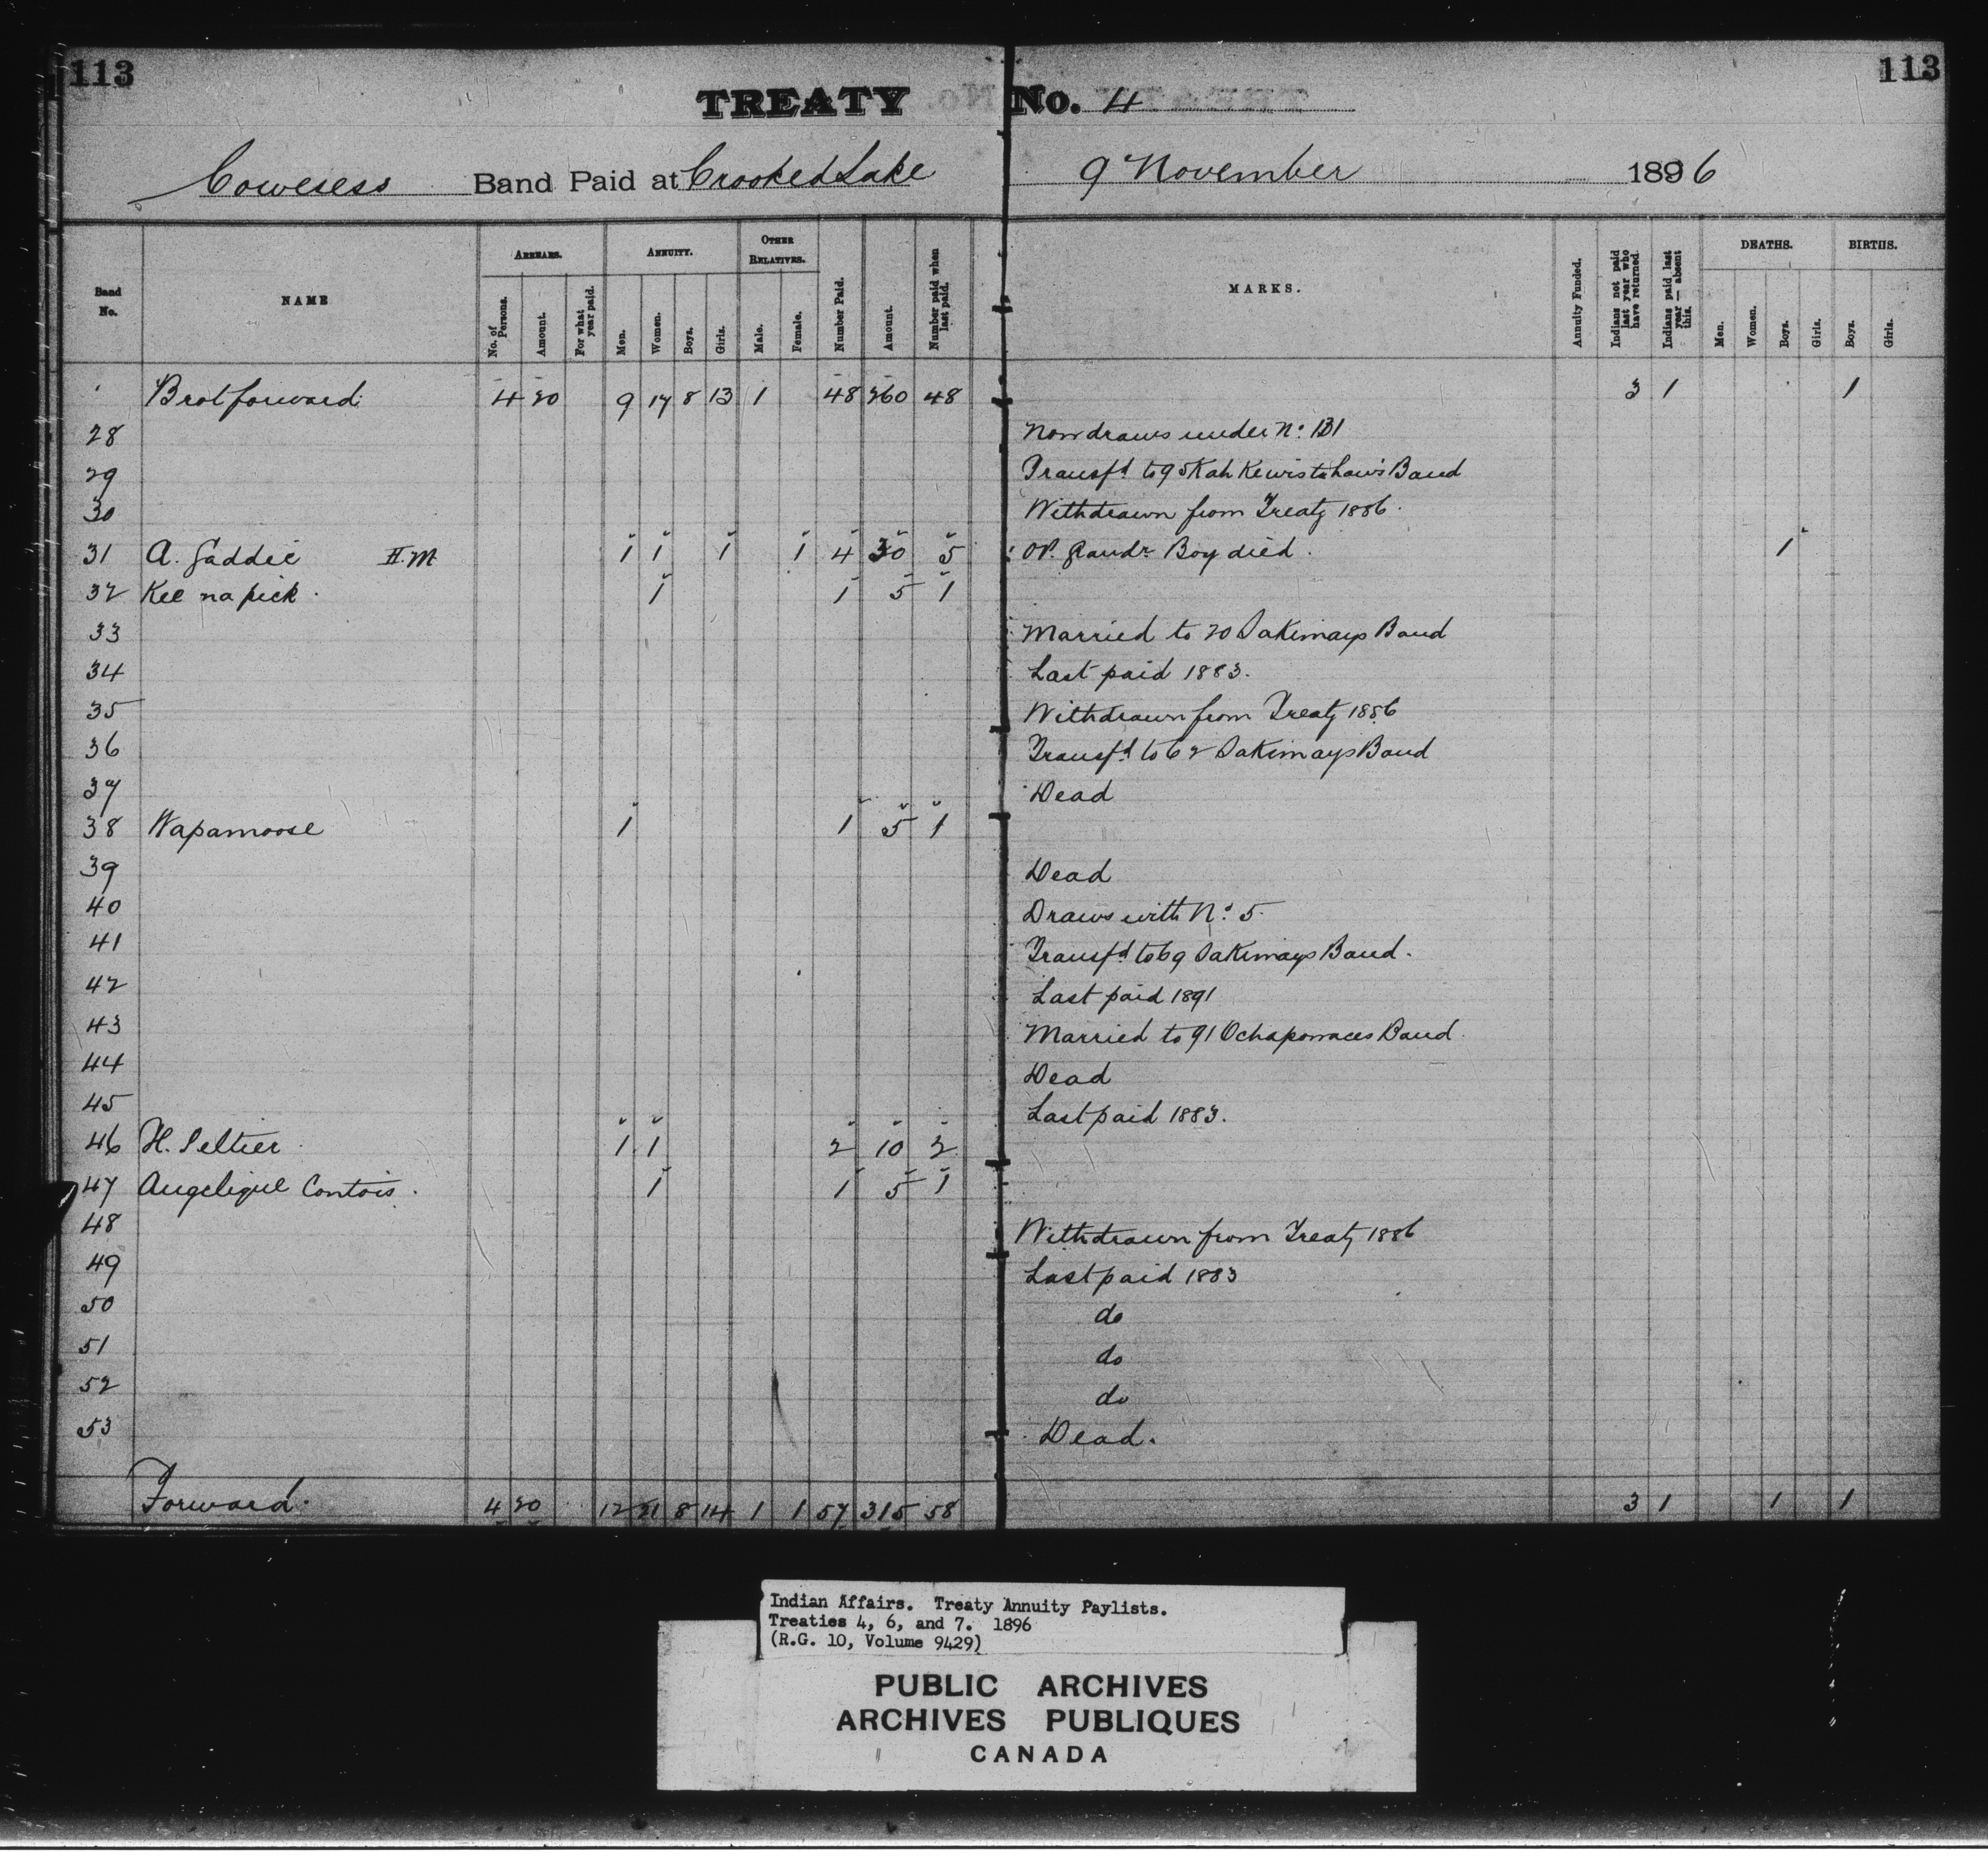 113 113
TREATY No. 4
Cowesess Band Paid at Crooked Lake 9 November 1896
Band No. NAME ARREARS. No. of Persons. Amount. For what year paid. ANNUITY. Men. Women. Boys. Girls. OTHER RELATIVES. Male. Female. Number Paid. Amount. Number paid when last paid. MARKS. Annuity Funded. Indians not paid last year who have returned. Indians paid last year — absent this. DEATHS. Men. Women. Boys. Girls. BIRTHS. Boys. Girls.
Brot forward 4 20 9 17 8 13 1 48 260 48 3 1 1
28 Now draws under No. 131
29 Transfd to 95 Kah Kewistahaw's Band
30 Withdrawn from Treaty 1886.
31 A. Gaddie H.M 1 1 1 1 4 30 5 Boy died. 1
32 Kee na pick. 1 1 5 1
33 Married to 20 Sakimays Band
34 Last paid 1883.
35 Withdrawn from Treaty 1886
36 Transfd to 62 Sakimays Band
37 Dead
38 Wapamoose 1 1 5 1
39 Dead
40 Draws with No. 5.
41 Transfd to 69 Sakimays Band.
42 Last paid 1891
43 Married to 91 Ochapowaces Band.
44 Dead
45 Last paid 1883.
46 H. Peltier 1 1 2 10 2
47 Angelique Contois. 1 1 5 1
48 Withdrawn from Treaty 1886
49 Last paid 1883
50 do
51 do
52 do
53 Dead.
Forward. 4 20 12 21 8 14 1 1 57 315 58 3 1 1 1
Indian Affairs. Treaty Annuity Paylists.
Treaties 4, 6, and 7. 1896
(R.G. 10, Volume 9429)
PUBLIC ARCHIVES
ARCHIVES PUBLIQUES
CANADA